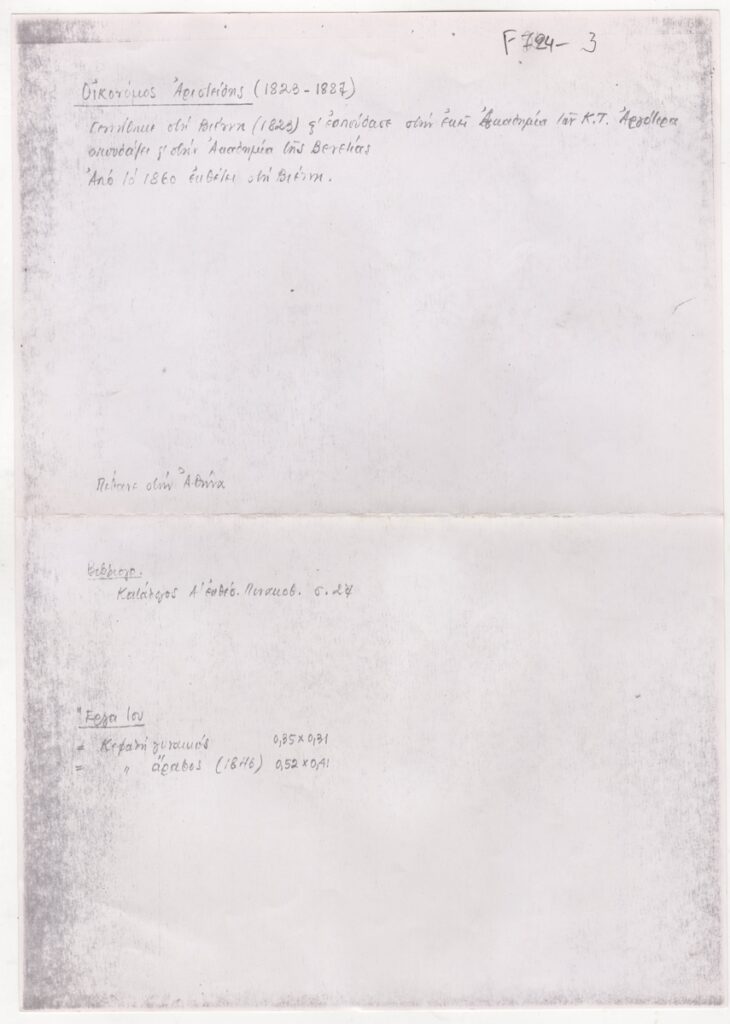 F724-3
Οἰκονόμος Ἀριστείδης (1823-1887)
Γεννήθηκε στή Βιέννη (1823) κ' ἐσπούδασε στήν ἐκεῖ Ἀκαδημία τῶν Κ.Τ. Ἀργότερα
σπουδάζει κ' στήν Ἀκαδημία τῆς Βενετίας
Ἀπό τό 1860 ἐκθέτει στή Βιέννη.
Πέθανε στήν Ἀθήνα
Βιβλιογρ.
Κατάλογος Α' ἐκθέσ. Πινακοθ. σ. 27
Ἔργα του
= Κεφαλή γυναικός 0,35 x 0,31
= " ἄραβος (1846) 0,52 x 0,41